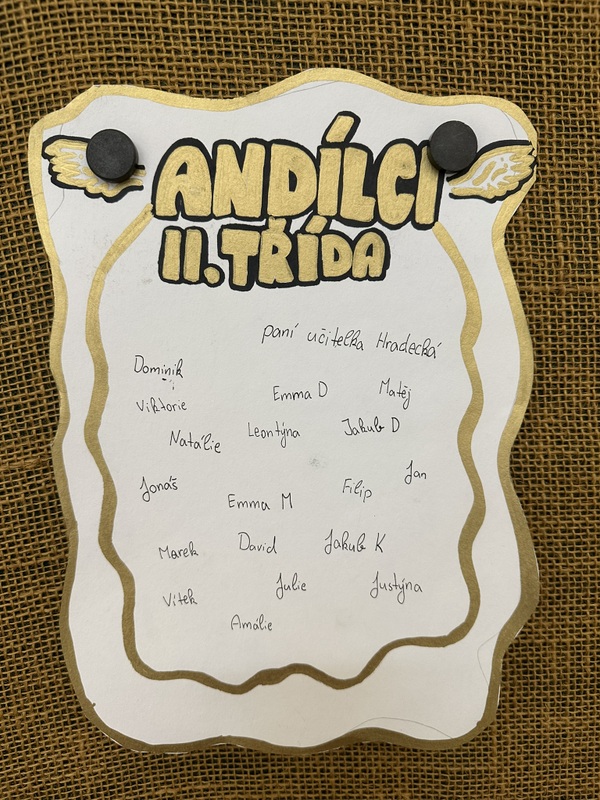 ANDÍLCI
II. TŘÍDA
paní učitelka Hradecká
Dominik
Viktorie Emma D Matěj
Natálie Leontýna Jakub D
Jonáš Emma M Filip Jan
Marek David Jakub K
Vítek Julie Justýna
Amálie